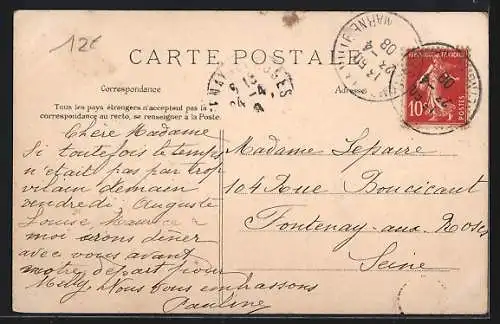 12€
CARTE POSTALE
Correspondance
Adresse
Tous les pays étrangers n'acceptent pas la
correspondance au recto, se renseigner à la Poste.
Chère Madame
Si toutefois le temps
n'était pas par trop
vilain demain
vendredi Auguste
Louise, Maurice &
moi irons dîner
avec vous avant
notre départ pour
Milly. Nous vous embrassons
Pauline
Madame Lepaire
104 Rue Boucicaut
Fontenay-aux-Roses
Seine
10
POSTES
MARNE